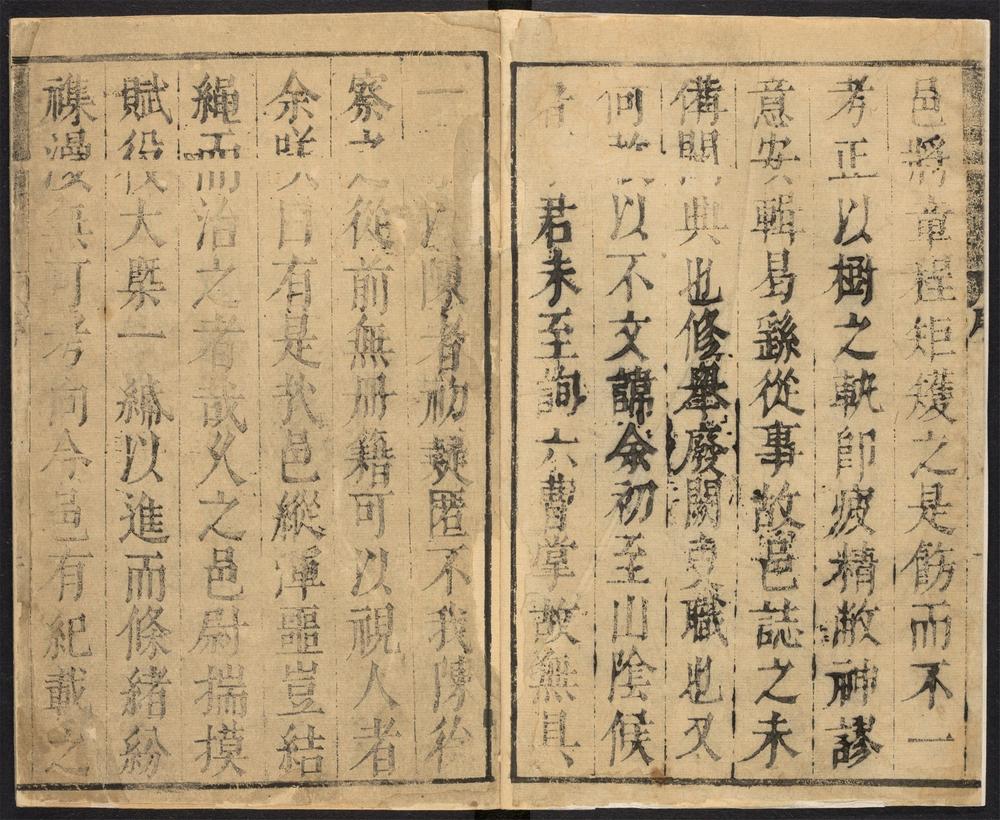 邑將章程矩矱之是飭而不一
考正以樹之執即疲精敝神謬
意安輯曷繇從事故邑誌之未
備闕典也修舉廢闕吏職也又
何 以不文諱余初至山陰候
者 君未至詢六曹掌故無具
一 以陳者初疑匿不我陳後
察之從前無册籍可以視人者
余咲曰有是哉邑縱渾噩豈結
繩而治之者哉久之邑尉揣摸
賦役大槩一編以進而條緒紛
襍漫漶無可考向令邑有紀載之